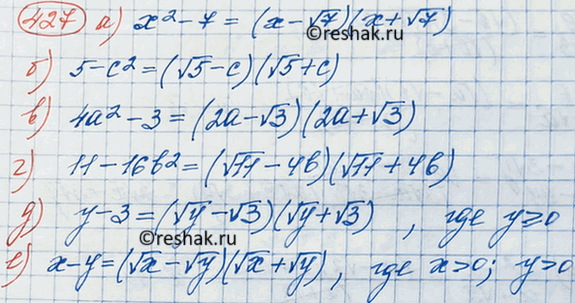 427 а) x² - 7 = (x - √7)(x + √7)
©reshak.ru
б) 5 - c² = (√5 - c)(√5 + c)
в) 4a² - 3 = (2a - √3)(2a + √3)
г) 11 - 16b² = (√11 - 4b)(√11 + 4b)
д) y - 3 = (√y - √3)(√y + √3) , где y ≥ 0
©reshak.ru
е) x - y = (√x - √y)(√x + √y) , где x ≥ 0; y ≥ 0